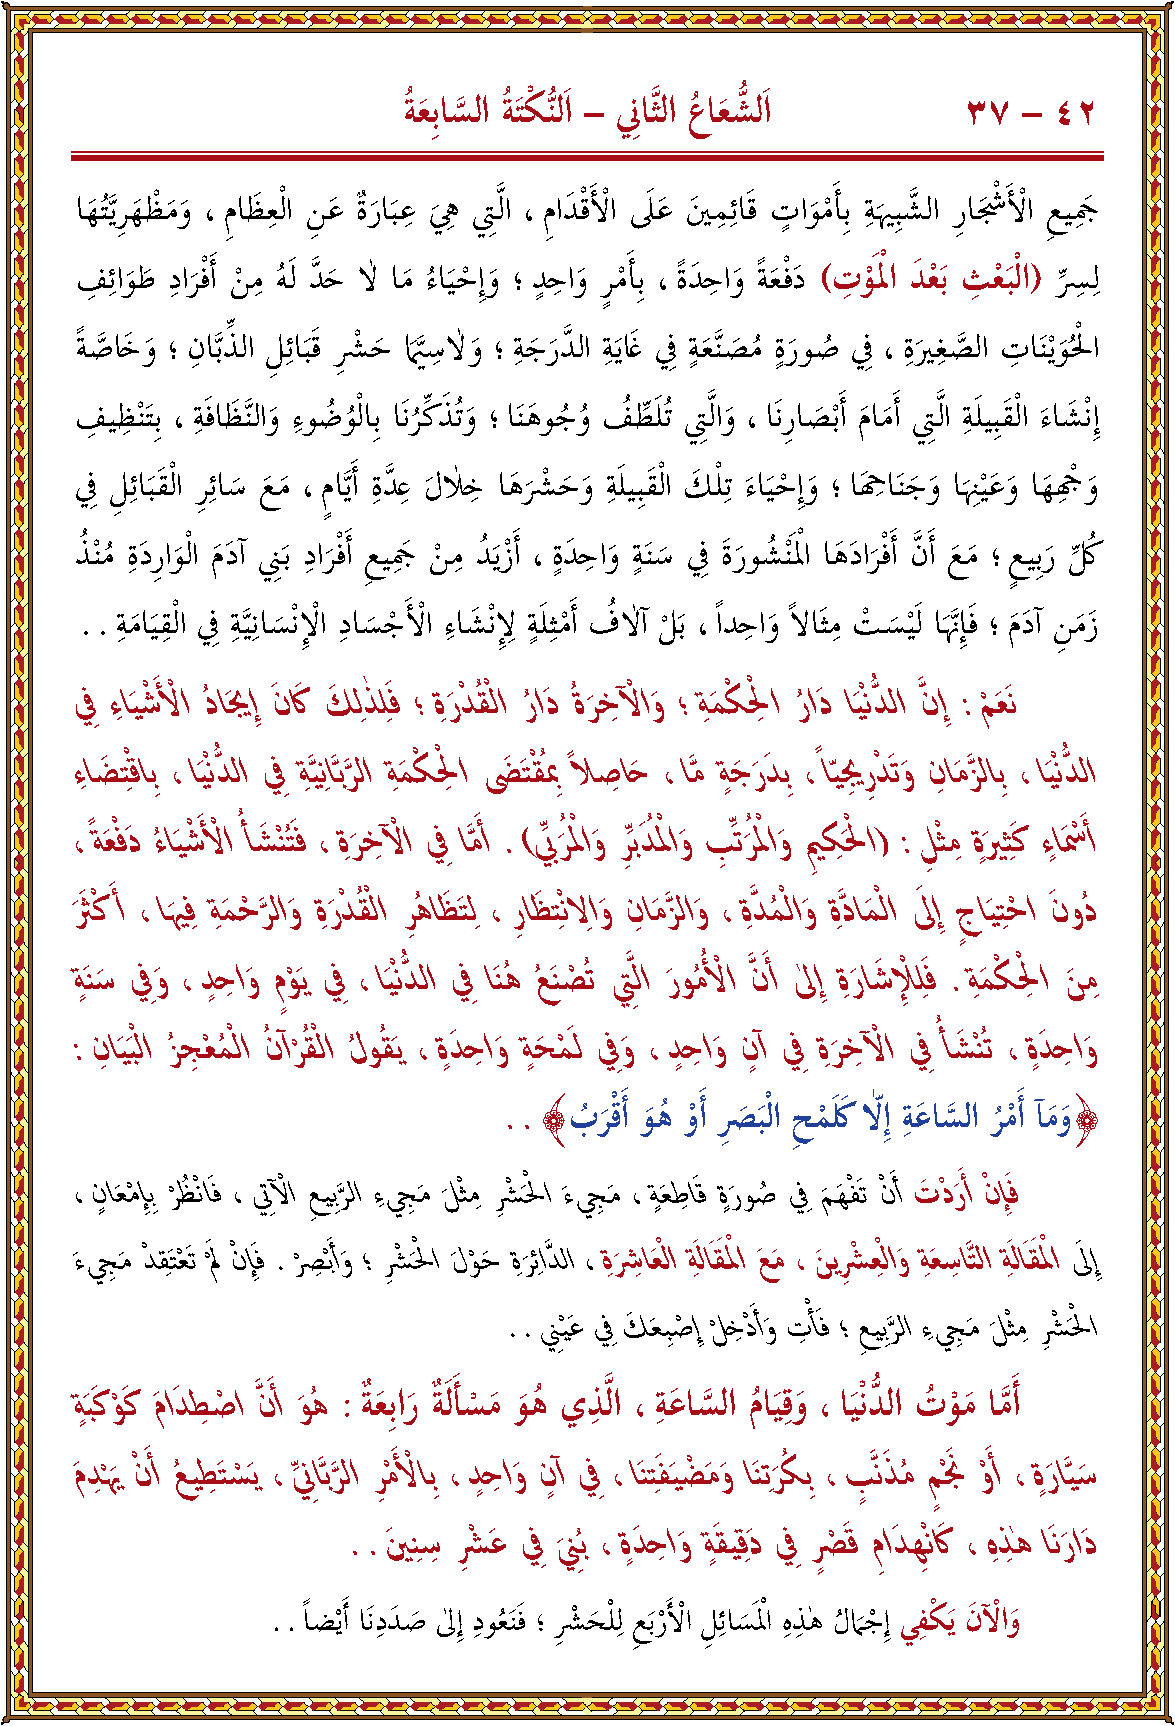 ٤٢ – ٣٧ اَلشُّعَاعُ الثَّانِي – اَلنُّكْتَةُ السَّابِعَةُ
جَمِيعِ الْأَشْجَارِ الشَّبِيهَةِ بِأَمْوَاتٍ قَائِمِينَ عَلَى الْأَقْدَامِ ، الَّتِي هِيَ عِبَارَةٌ عَنِ الْعِظَامِ ، وَمَظْهَرِيَّتُهَا
لِسِرِّ (الْبَعْثِ بَعْدَ الْمَوْتِ) دَفْعَةً وَاحِدَةً ، بِأَمْرٍ وَاحِدٍ ؛ وَإِحْيَاءُ مَا لَا حَدَّ لَهُ مِنْ أَفْرَادِ طَوَائِفِ
الْحُوَيْنَاتِ الصَّغِيرَةِ ، فِي صُورَةٍ مُصَنَّعَةٍ فِي غَايَةِ الدَّرَجَةِ ؛ وَلَاسِيَّمَا حَشْرِ قَبَائِلِ الذِّبَّانِ ؛ وَخَاصَّةً
إِنْشَاءَ الْقَبِيلَةِ الَّتِي أَمَامَ أَبْصَارِنَا ، وَالَّتِي تُلَطِّفُ وُجُوهَنَا ؛ وَتُذَكِّرُنَا بِالْوُضُوءِ وَالنَّظَافَةِ ، بِتَنْظِيفِ
وَجْهِهَا وَعَيْنِهَا وَجَنَاحِهَا ؛ وَإِحْيَاءَ تِلْكَ الْقَبِيلَةِ وَحَشْرَهَا خِلَالَ عِدَّةِ أَيَّامٍ ، مَعَ سَائِرِ الْقَبَائِلِ فِي
كُلِّ رَبِيعٍ ؛ مَعَ أَنَّ أَفْرَادَهَا الْمَنْشُورَةَ فِي سَنَةٍ وَاحِدَةٍ ، أَزْيَدُ مِنْ جَمِيعِ أَفْرَادِ بَنِي آدَمَ الْوَارِدَةِ مُنْذُ
زَمَنِ آدَمَ ؛ فَإِنَّهَا لَيْسَتْ مِثَالاً وَاحِداً ، بَلْ آلَافُ أَمْثِلَةٍ لِإِنْشَاءِ الْأَجْسَادِ الْإِنْسَانِيَّةِ فِي الْقِيَامَةِ . .
نَعَمْ : إِنَّ الدُّنْيَا دَارُ الْحِكْمَةِ ؛ وَالْآخِرَةُ دَارُ الْقُدْرَةِ ؛ فَلِذٰلِكَ كَانَ إِيجَادُ الْأَشْيَاءِ فِي
الدُّنْيَا ، بِالزَّمَانِ وَتَدْرِيجِيّاً ، بِدَرَجَةٍ مَّا ، حَاصِلاً بِمُقْتَضَى الْحِكْمَةِ الرَّبَّانِيَّةِ فِي الدُّنْيَا ، بِاقْتِضَاءِ
أَسْمَاءٍ كَثِيرَةٍ مِثْلِ : (الْحَكِيمِ وَالْمُرَتِّبِ وَالْمُدَبِّرِ وَالْمُرَبِّي) . أَمَّا فِي الْآخِرَةِ ، فَتُنْشَأُ الْأَشْيَاءُ دَفْعَةً ،
دُونَ احْتِيَاجٍ إِلَى الْمَادَّةِ وَالْمُدَّةِ ، وَالزَّمَانِ وَالِانْتِظَارِ ، لِتَظَاهُرِ الْقُدْرَةِ وَالرَّحْمَةِ فِيهَا ، أَكْثَرَ
مِنَ الْحِكْمَةِ . فَلِلْإِشَارَةِ إِلَىٰ أَنَّ الْأُمُورَ الَّتِي تُصْنَعُ هُنَا فِي الدُّنْيَا ، فِي يَوْمٍ وَاحِدٍ ، وَفِي سَنَةٍ
وَاحِدَةٍ ، تُنْشَأُ فِي الْآخِرَةِ فِي آنٍ وَاحِدٍ ، وَفِي لَمْحَةٍ وَاحِدَةٍ ، يَقُولُ الْقُرْآنُ الْمُعْجِزُ الْبَيَانِ :
﴿وَمَآ أَمْرُ السَّاعَةِ إِلَّا كَلَمْحِ الْبَصَرِ أَوْ هُوَ أَقْرَبُ﴾ . .
فَإِنْ أَرَدْتَ أَنْ تَفْهَمَ فِي صُورَةٍ قَاطِعَةٍ ، مَجِيءَ الْحَشْرِ مِثْلَ مَجِيءِ الرَّبِيعِ الْآتِي ، فَانْظُرْ بِإِمْعَانٍ ،
إِلَى الْمَقَالَةِ التَّاسِعَةِ وَالْعِشْرِينَ ، مَعَ الْمَقَالَةِ الْعَاشِرَةِ ، الدَّائِرَةِ حَوْلَ الْحَشْرِ ؛ وَأَبْصِرْ . فَإِنْ لَمْ تَعْتَقِدْ مَجِيءَ
الْحَشْرِ مِثْلَ مَجِيءِ الرَّبِيعِ ؛ فَأْتِ وَأَدْخِلْ إِصْبِعَكَ فِي عَيْنِي . .
أَمَّا مَوْتُ الدُّنْيَا ، وَقِيَامُ السَّاعَةِ ، الَّذِي هُوَ مَسْأَلَةٌ رَابِعَةٌ : هُوَ أَنَّ اصْطِدَامَ كَوْكَبَةٍ
سَيَّارَةٍ ، أَوْ نَجْمٍ مُذَنَّبٍ ، بِكُرَتِنَا وَمَضْيَفَتِنَا ، فِي آنٍ وَاحِدٍ ، بِالْأَمْرِ الرَّبَّانِيِّ ، يَسْتَطِيعُ أَنْ يَهْدِمَ
دَارَنَا هٰذِهِ ، كَانْهِدَامِ قَصْرٍ فِي دَقِيقَةٍ وَاحِدَةٍ ، بُنِيَ فِي عَشْرِ سِنِينَ . .
وَالْآنَ يَكْفِي إِجْمَالُ هٰذِهِ الْمَسَائِلِ الْأَرْبَعِ لِلْحَشْرِ ؛ فَنَعُودِ إِلَىٰ صَدَدِنَا أَيْضاً . .